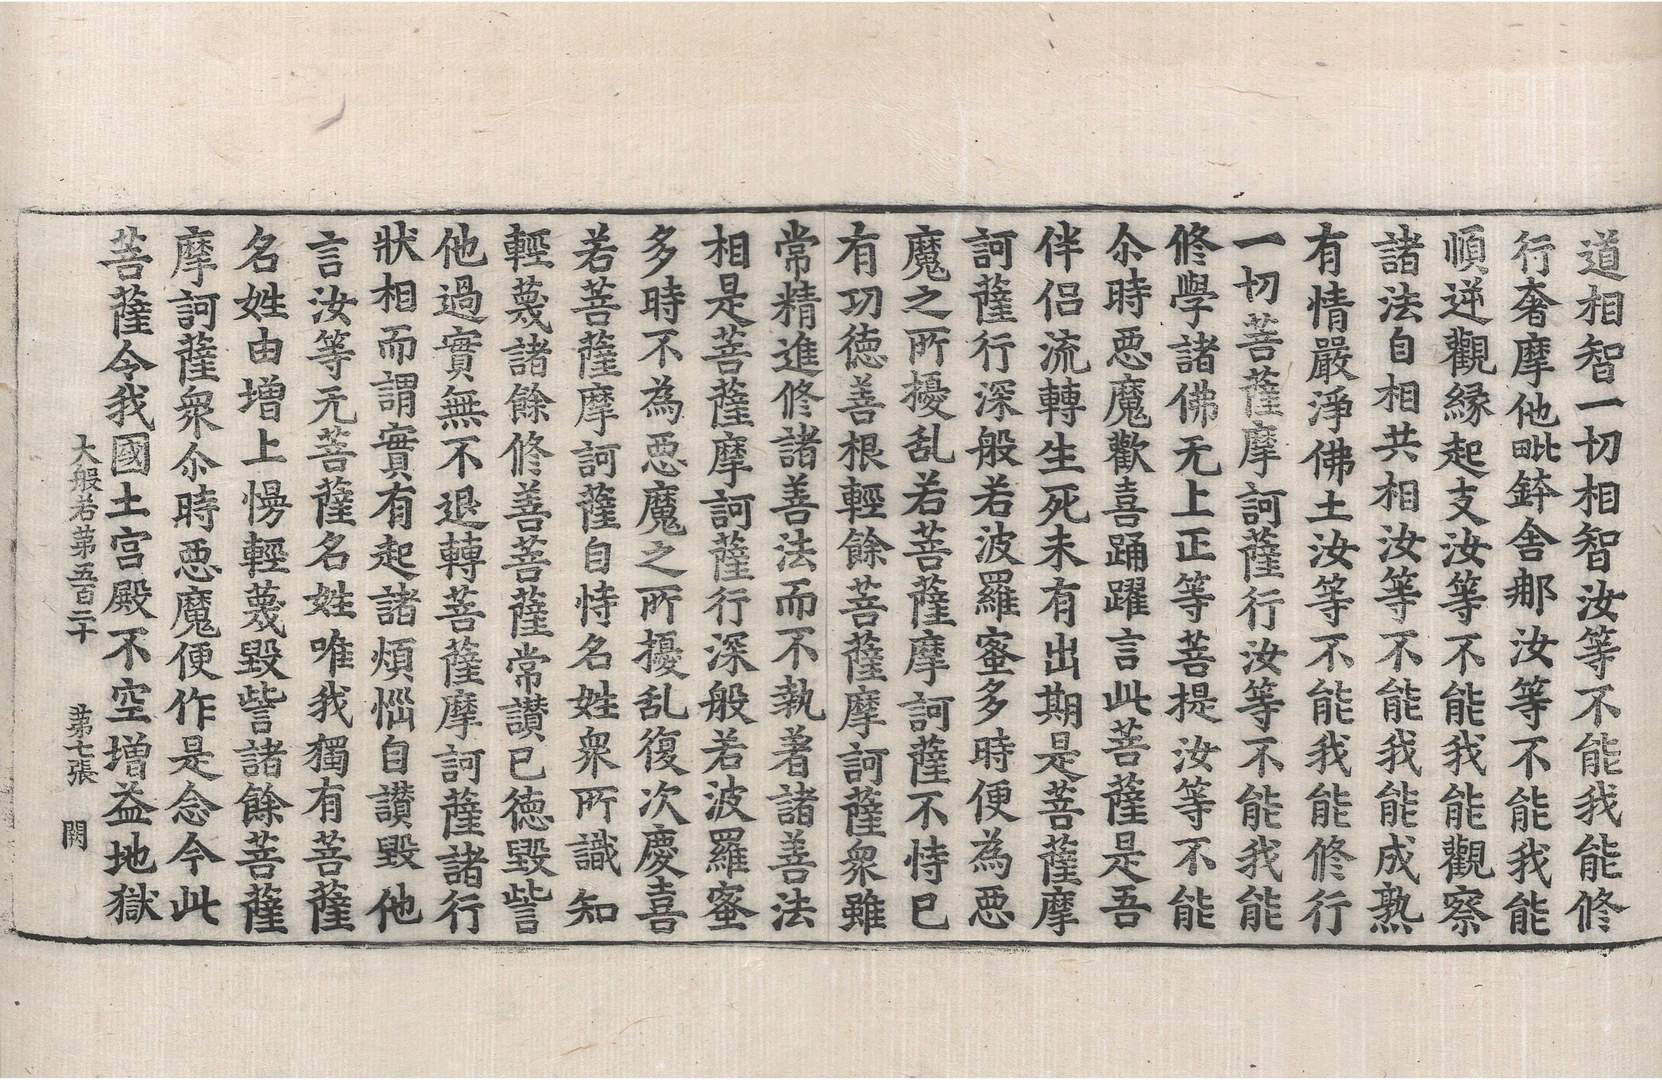 道相智一切相智汝等不能我能修
行奢摩他毗鉢舍那汝等不能我能
順逆觀緣起支汝等不能我能觀察
諸法自相共相汝等不能我能成熟
有情嚴淨佛土汝等不能我能修行
一切菩薩摩訶薩行汝等不能我能
修學諸佛无上正等菩提汝等不能
尒時惡魔歡喜踊躍言此菩薩是吾
伴侣流轉生死未有出期是菩薩摩
訶薩行深般若波羅蜜多時便為惡
魔之所擾乱若菩薩摩訶薩不恃已
有功德善根輕餘菩薩摩訶薩衆雖
常精進修諸善法而不執著諸善法
相是菩薩摩訶薩行深般若波羅蜜
多時不為惡魔之所擾乱復次慶喜
若菩薩摩訶薩自恃名姓衆所識知
輕蔑諸餘修善菩薩常讃已德毀訾
他過實無不退轉菩薩摩訶薩諸行
狀相而謂實有起諸煩惱自讃毀他
言汝等无菩薩名姓唯我獨有菩薩
名姓由增上慢輕蔑毀訾諸餘菩薩
摩訶薩衆尒時惡魔便作是念今此
菩薩令我國土宫殿不空增益地獄
大般若第五百二十 第七張 閼